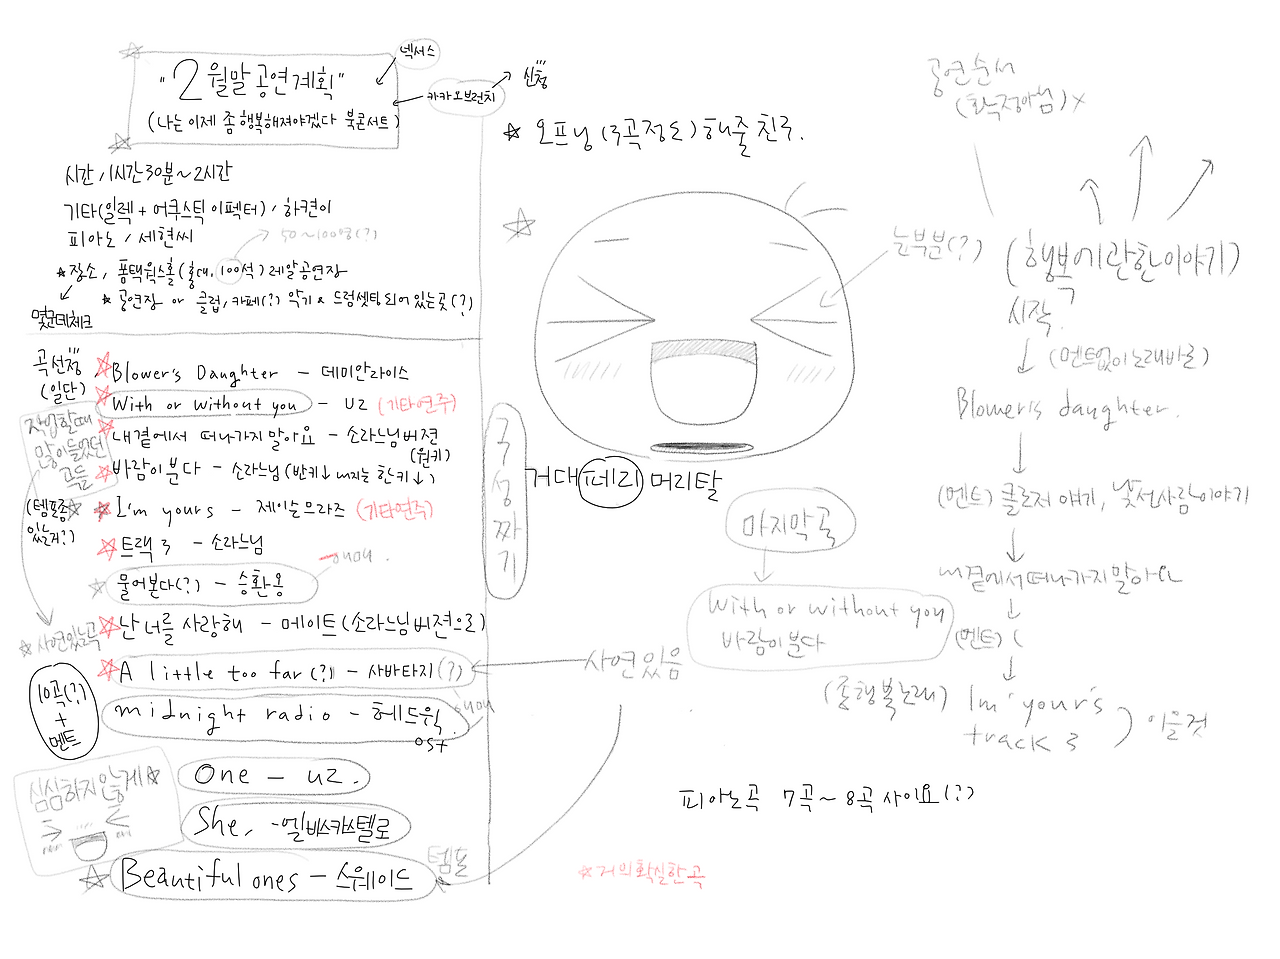 넥서스
"2월말 공연계획"
카카오브런치
신청
(나는 이제 좀 행복해져야겠다 북콘서트)
시간, 1시간30분~2시간
기타(일렉 + 어쿠스틱 이펙터), 하켠이
피아노, 세현씨
50~100명(?)
장소, 폼택웍스홀(홍대, 100석) 레알공연장
공연장 or 클럽, 카페(?) 악기 & 드럼셋팅되어있는곳(?)
몇군데체크
곡선정
(일단)
Blower's Daughter - 데미안라이스
With or without you - U2 (기타연주)
작업할때
많이들었던
곡들
내곁에서 떠나가지말아요 - 소라느님버젼
(원키)
바람이분다 - 소라느님(반키↓ 내지는 한키↓)
(템포좀
있는거?)
I'm yours - 제이슨므라즈 (기타연주)
트랙 3 - 소라느님
물어본다(?) - 승환옹
사연있는곡
난 너를 사랑해 - 메이트(소라느님버젼으로)
A little too far(?) - 사바타지(?)
10곡(?)
+
멘트
midnight radio - 헤드윅
ost
심심하지않게
One - U2.
She, - 엘비스카스텔로
Beautiful ones - 스웨이드
템포
오프닝(3곡정도)해줄친구.
눈부분(?)
구성짜기
거대 페리 머리탈
마지막곡
With or without you
바람이분다
사연있음
피아노곡 7곡~8곡사이요(?)
거의확실한곡
공연순서
(확정아님)x
(행복에관한이야기)
시작?
(멘트없이노래바로)
Blower's daughter.
(멘트) 클로저 얘기, 낯선사람이야기
내곁에서떠나가지말아요
(멘트) (
(좀행복노래)
Im' yours
track 3
이을것